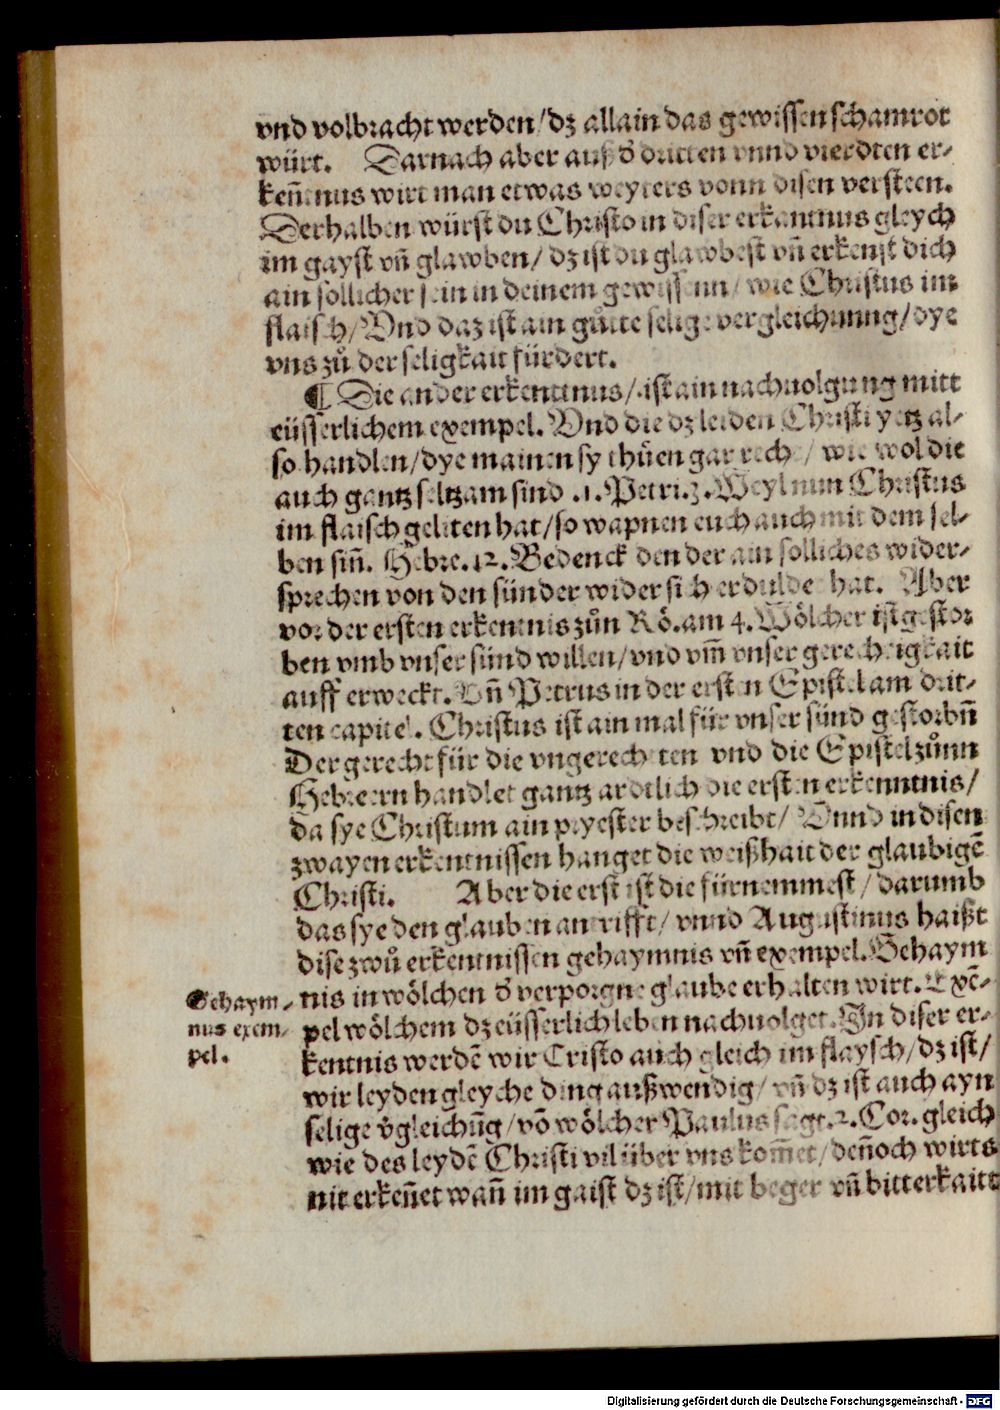 vnd volbracht werden/dz allain das gewissen schamrot
würt. Darnach aber auß d̕ dritten vnnd vierdten er-
keñtnus wirt man etwas weyters vonn disen versteen.
Derhalben würst du Christo in diser erkantnus gleych
im gayst vñ glawben/ dz ist du glawbest vñ erkenst dich
ain sollicher sein in deinem gewissenn/ wie Christus im
flaisch/Vnd daz ist ain gůtte selige vergleichnung/dye
vns zů der seligkait fürdert.
¶ Die ander erkentnus/ ist ain nachuolgung mitt
eüsserlichem exempel. Vnd die dz leiden Christi yetz al-
so handlen/dye mainen sy thůen gar recht/ wie wol die
auch gantz seltzam sind .1. Petri.3. Weyl nun Christus
im flaisch geliten hat/so wapnen euch auch mit dem sel-
ben siñ. Hebre.12. Bedenck den der ain solliches wider-
sprechen von den sünder wider sich erduldet hat. Aber
vor der ersten erkentnis zůn Rö.am 4. Wölcher ist gestor
ben vmb vnser sünd willen/vnd vm̃ vnser gerechtigkait
auff erweckt. Vñ Petrus in der ersten Epistel am drit-
ten capitel. Christus ist ain mal für vnser sünd gestorbñ
Der gerecht für die vngerechten vnd die Epistel zůnn
Hebreern handlet gantz ardtlich die ersten erkenntnis/
da sye Christum ain pryester beschreibt/ Vnnd in disen
zwayen erkentnissen hanget die weißhait der glaubigē
Christi. Aber die erst ist die fürnemmest/ darumb
das sye den glauben antrifft/ vnnd Augustinus haißt
dise zwů erkentnissen gehaymnis vñ exempel. Gehaym
nis in wölchen d̕ verporgne glaube erhalten wirt. Exē-
Gehaym-
nus exem-
pel.
pel wölchem dz eüsserlich leben nachuolget. In diser er-
kentnis werdē wir Cristo auch gleich im flaysch/dz ist/
wir leyden gleyche ding außwendig/ vñ dz ist auch ayn
selige v̕gleichūg/vō wölcher Paulus sagt.2.Cor.gleich
wie des leydē Christi vil über vns kom̃et/deñoch wirts
nit erkeñet wañ im gaist dz ist/mit beger vñ bitterkaitt
Digitalisierung gefördert durch die Deutsche Forschungsgemeinschaft - DFG